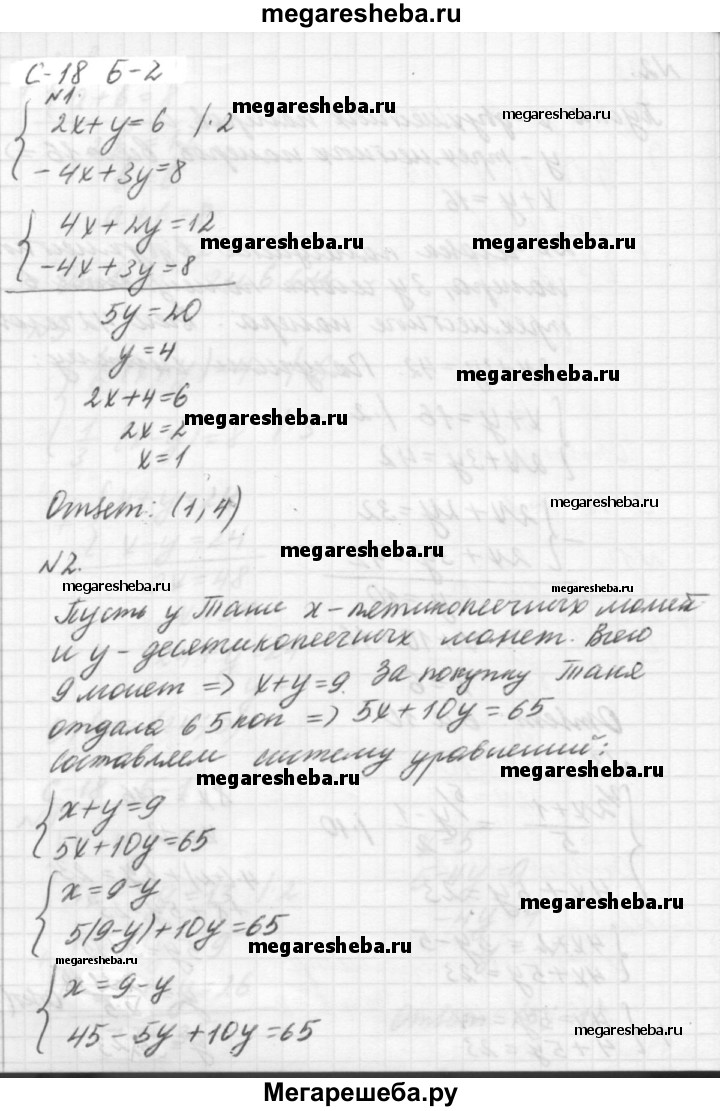 megaresheba.ru
С-18 Б-2
№1.
2x+y=6 /·2
megaresheba.ru
-4x+3y=8
4x+2y=12
megaresheba.ru megaresheba.ru
-4x+3y=8
5y=20
y=4
megaresheba.ru
2x+4=6
megaresheba.ru
2x=2
x=1
Ответ: (1,4)
megaresheba.ru
megaresheba.ru
№2.
megaresheba.ru megaresheba.ru
Пусть у Тани x-пятикопеечных монет
и y-десятикопеечных монет. Всего
9 монет => x+y=9. За покупку Таня
отдала 65 коп => 5x+10y=65
Составляем систему уравнений:
megaresheba.ru megaresheba.ru
x+y=9
5x+10y=65
x=9-y
megaresheba.ru
5(9-y)+10y=65
megaresheba.ru
megaresheba.ru
x=9-y
45-5y+10y=65
megaresheba.ru
Мегарешеба.ру